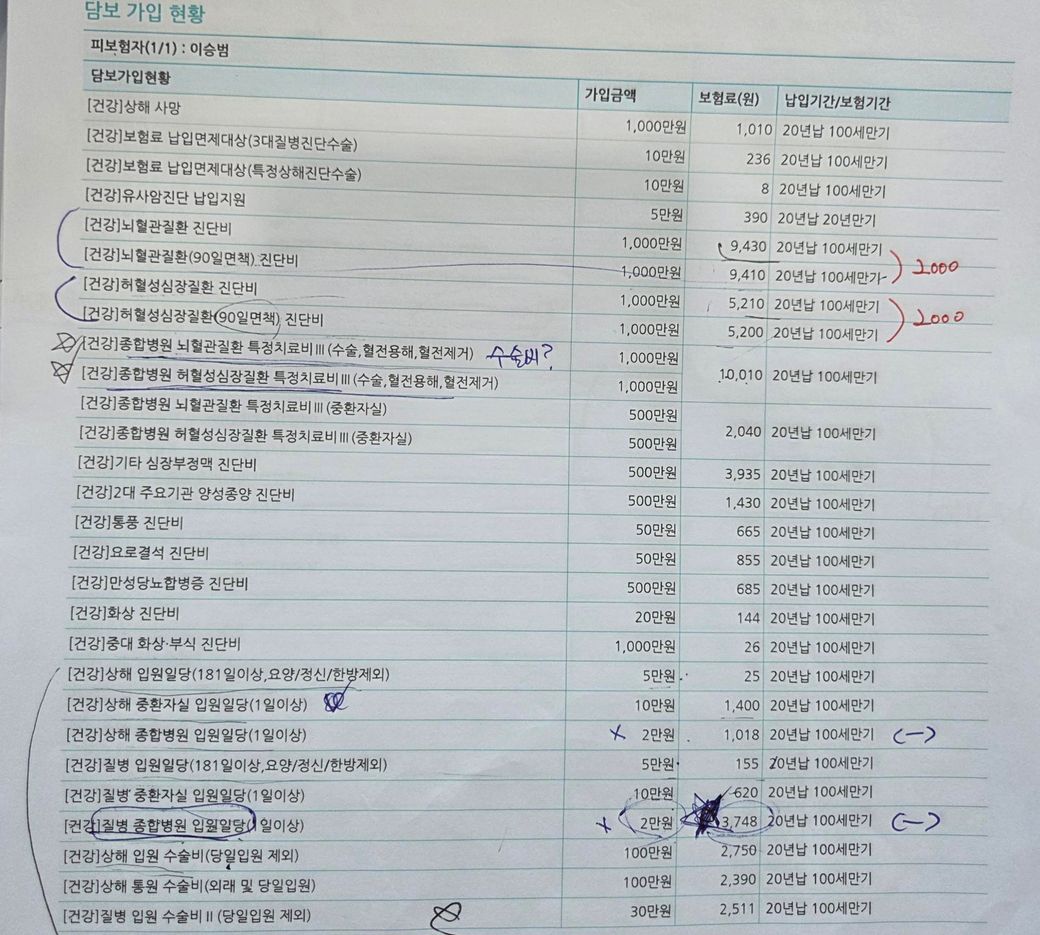 담보 가입 현황
피보험자(1/1) : 이승범
담보가입현황 가입금액 보험료(원) 납입기간/보험기간
[건강]상해 사망 1,000만원 1,010 20년납 100세만기
[건강]보험료 납입면제대상(3대질병진단수술) 10만원 236 20년납 100세만기
[건강]보험료 납입면제대상(특정상해진단수술) 10만원 8 20년납 100세만기
[건강]유사암진단 납입지원 5만원 390 20년납 20년만기
[건강]뇌혈관질환 진단비 1,000만원 9,430 20년납 100세만기
[건강]뇌혈관질환(90일면책) 진단비 1,000만원 9,410 20년납 100세만기 2000
[건강]허혈성심장질환 진단비 1,000만원 5,210 20년납 100세만기
[건강]허혈성심장질환(90일면책) 진단비 1,000만원 5,200 20년납 100세만기 2000
[건강]종합병원 뇌혈관질환 특정치료비Ⅲ(수술,혈전용해,혈전제거) 수술비? 1,000만원
[건강]종합병원 허혈성심장질환 특정치료비Ⅲ(수술,혈전용해,혈전제거) 1,000만원 10,010 20년납 100세만기
[건강]종합병원 뇌혈관질환 특정치료비Ⅲ(중환자실) 500만원
[건강]종합병원 허혈성심장질환 특정치료비Ⅲ(중환자실) 500만원 2,040 20년납 100세만기
[건강]기타 심장부정맥 진단비 500만원 3,935 20년납 100세만기
[건강]2대 주요기관 양성종양 진단비 500만원 1,430 20년납 100세만기
[건강]통풍 진단비 50만원 665 20년납 100세만기
[건강]요로결석 진단비 50만원 855 20년납 100세만기
[건강]만성당뇨합병증 진단비 500만원 685 20년납 100세만기
[건강]화상 진단비 20만원 144 20년납 100세만기
[건강]중대 화상·부식 진단비 1,000만원 26 20년납 100세만기
[건강]상해 입원일당(181일이상,요양/정신/한방제외) 5만원 25 20년납 100세만기
[건강]상해 중환자실 입원일당(1일이상) 10만원 1,400 20년납 100세만기
[건강]상해 종합병원 입원일당(1일이상) × 2만원 1,018 20년납 100세만기 (-)
[건강]질병 입원일당(181일이상,요양/정신/한방제외) 5만원 155 20년납 100세만기
[건강]질병 중환자실 입원일당(1일이상) 10만원 620 20년납 100세만기
[건강]질병 종합병원 입원일당(1일이상) × 2만원 3,748 20년납 100세만기 (-)
[건강]상해 입원 수술비(당일입원 제외) 100만원 2,750 20년납 100세만기
[건강]상해 통원 수술비(외래 및 당일입원) 100만원 2,390 20년납 100세만기
[건강]질병 입원 수술비Ⅱ(당일입원 제외) 30만원 2,511 20년납 100세만기